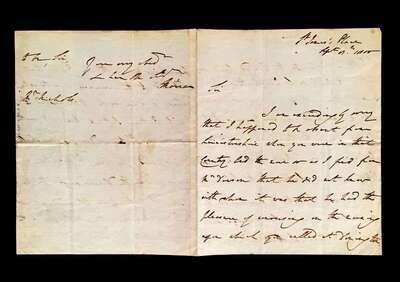 to be, Sir,
Your very
Mr Nichols.
St James's Place
Sir
I am exceedingly sorry
that I happened to be absent from
Lincolnshire when you were in that
County, and the more so as I find from
Mr that he did not know
with whom it was that he had the
pleasure of conversing on the evening
upon which you called at